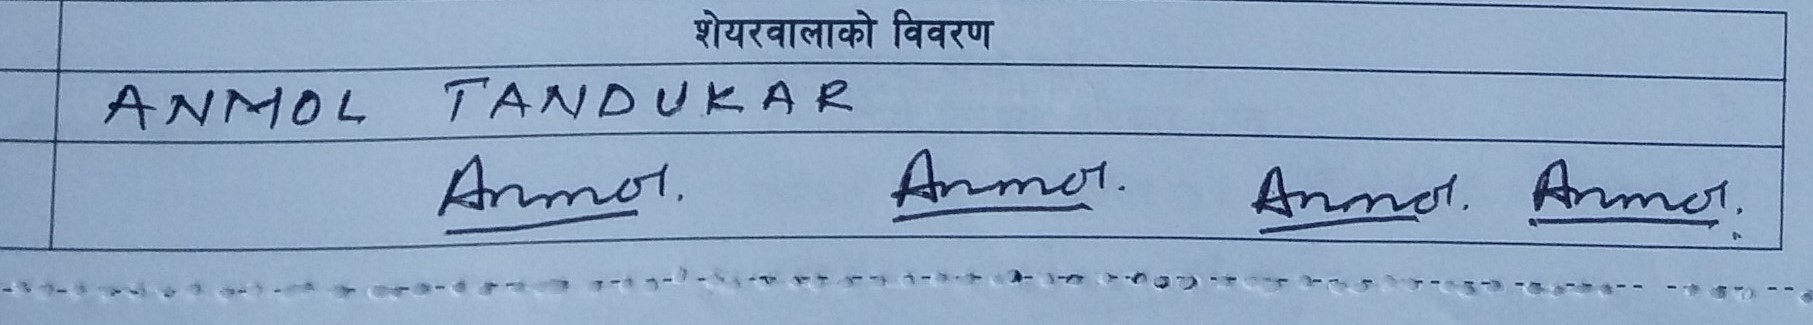 शेयरवालाको विवरण
ANMOL TANDUKAR
Anmol. Anmol. Anmol. Anmol.